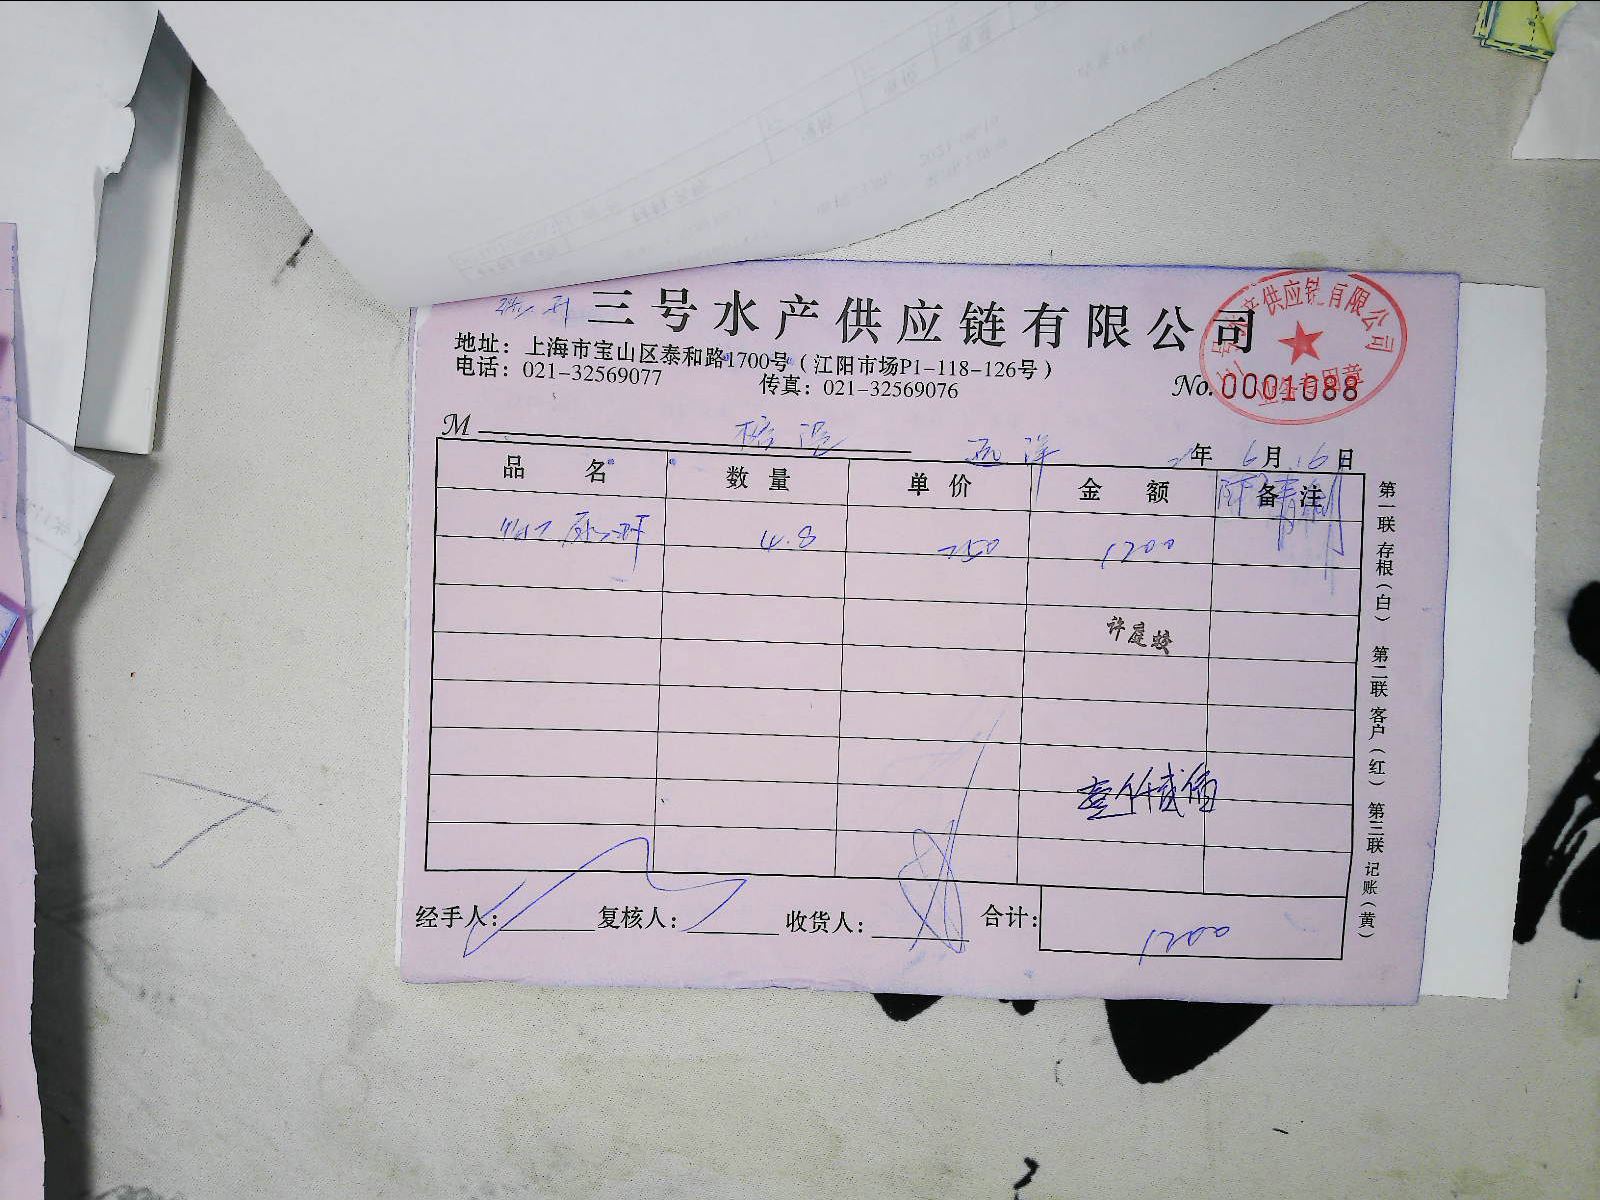 三号水产供应链有限公司
地址：上海市宝山区泰和路1700号（江阳市场P1-118-126号）
电话：021-32569077 传真：021-32569076
号水产供应链有限公司
业务专用章
No. 0001088
M 远洋 年 6月 16日
品名 数量 单价 金额 备注
4.8 250 1200
许庭蛟
壹仟贰佰
经手人： 复核人： 收货人： 合计： 1200
第一联 存根（白） 第二联 客户（红） 第三联 记账（黄）